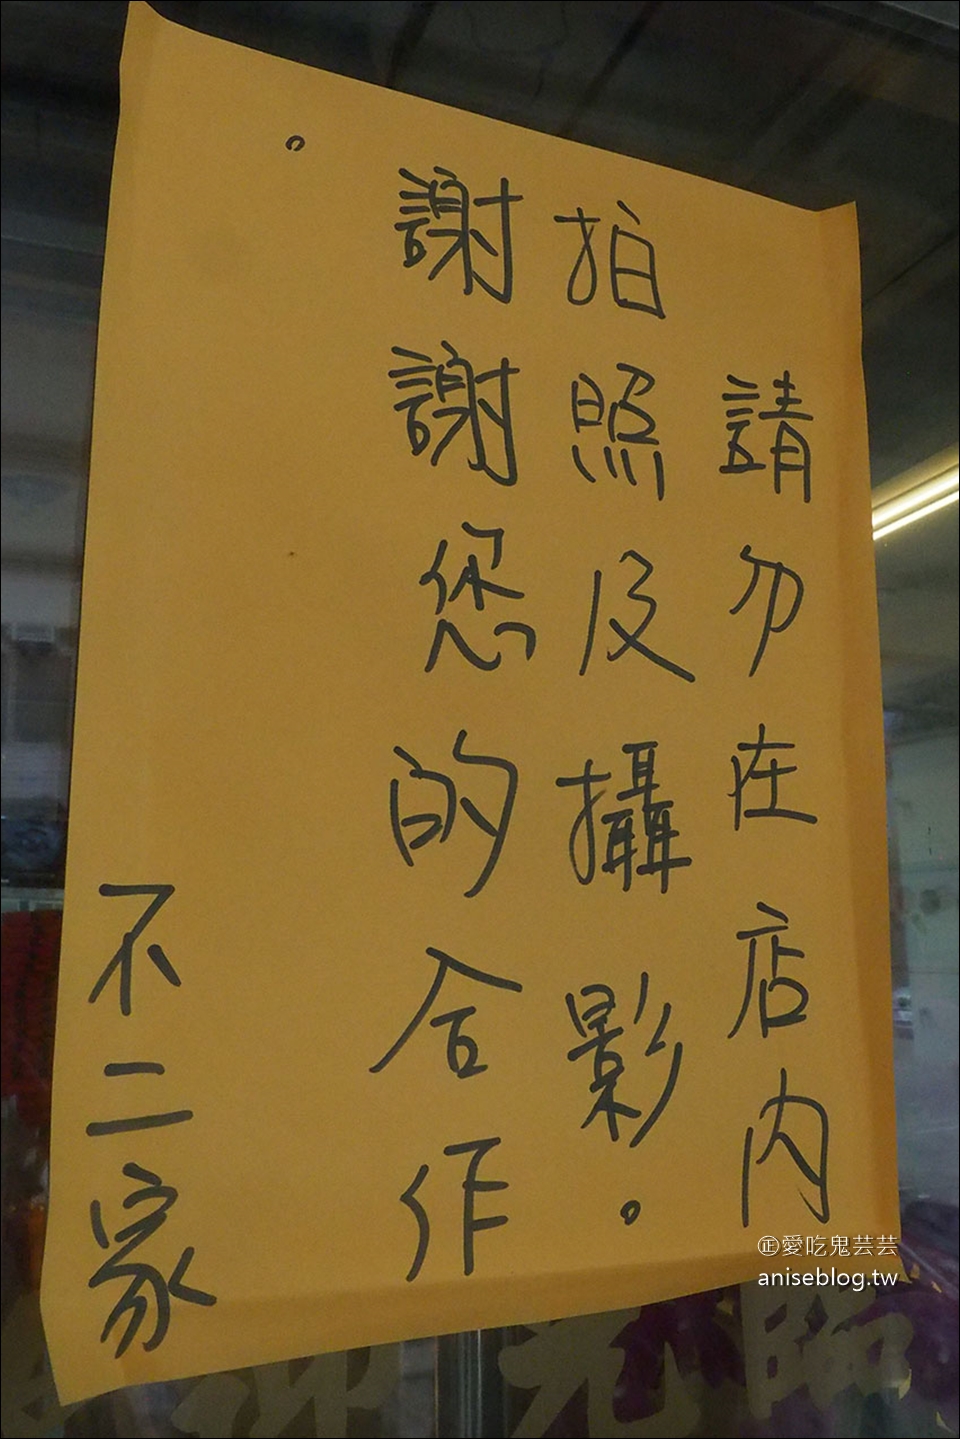 請勿在店内
拍照及攝影。
謝謝您的合作
。
不二家
㊣愛吃鬼芸芸
aniseblog.tw
光臨